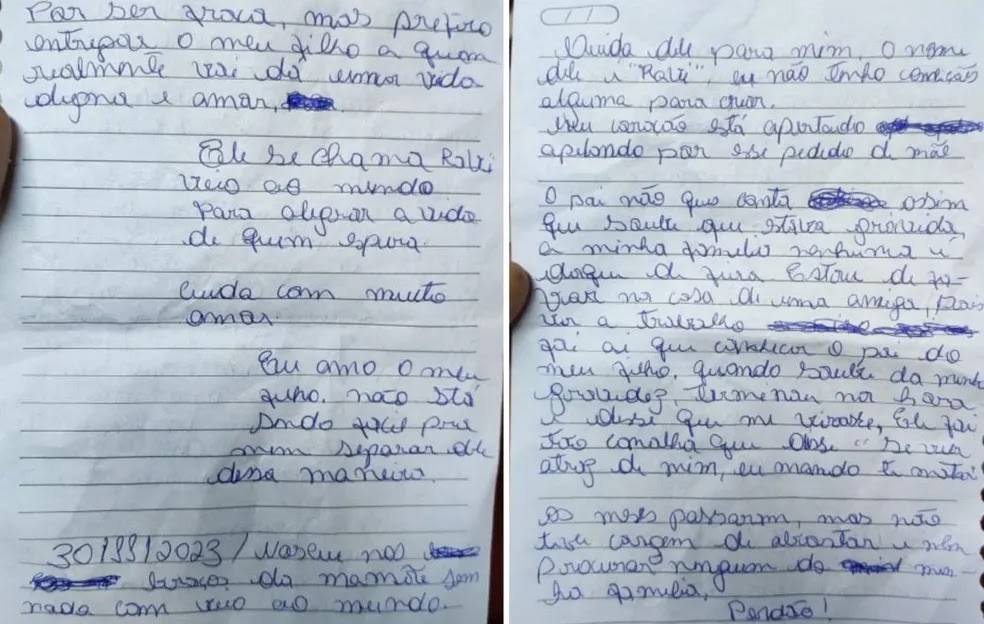 Por ser fraca, mas prefiro
entregar o meu filho a quem
realmente vai dá uma vida
digna e amar.
Ele se chama Ravi
veio ao mundo
para alegrar a vida
de quem espera.
Cuida com muito
amor.
Eu amo o meu
filho. não stá
sndo facil pra
mim separar dele
dessa maneira.
30/11/2023 / Nasceu nos
braços da mamãe sem
nada com veio ao mundo.
Cuida dele para mim. O nome
dele é "Ravi", eu não tenho condição
alguma para criar.
Meu coração está apertando
apelando por esse pedido de mãe
O pai não quis conta assim
que soube que estava gravida,
a minha familia nenhuma é
daqui de Estou de fa-
vor na casa de uma amiga,
vir a trabalho
foi ai que conhecer o pai do
meu filho, quando soube da minha
gravidez, terminou na hora
e disse que me virasse, Ele foi
tão canalha que disse "Se vier
atraz de mim, eu mando te matar
Os meses passarm, mas não
tive corgem de abortar e nem
procurar ninguem da mi-
ha familia,
Perdão!